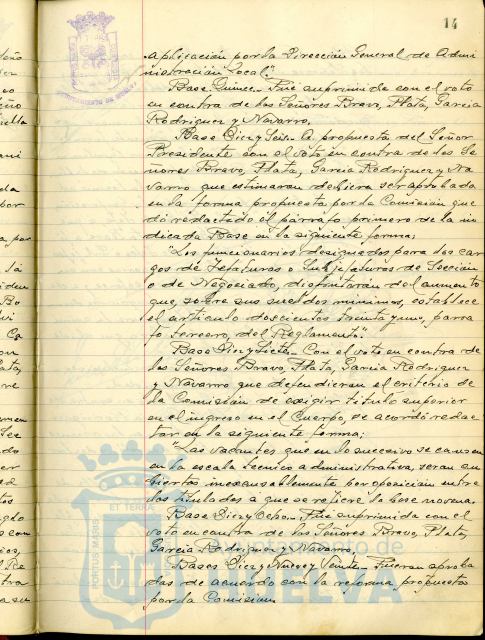 14
aplicación por la Dirección General de Admi
nistración Local".
Base Quince.- Fué suprimida con el voto
en contra de los Señores Bravo, Plata, Garcia
Rodriguez y Navarro.
Base Diez y Seis.- A propuesta del Señor
Presidente con el voto en contra de los Se
ñores Bravo, Plata, Garcia Rodriguez y Na
varro que estimaron debiera ser aprobada
en la forma propuesta por la Comisión que
dó redactado el párrafo primero de la in
dicada Base en la siguiente forma:
"Los funcionarios designados para los car
gos de Jefaturas o Subjefaturas de Sección
o de Negociado, disfrutarán del aumento
que, sobre sus sueldos mínimos, establece
el artículo doscientos treinta y uno, párra
fo tercero, del Reglamento".
Base Diez y Siete.- Con el voto en contra de
los Señores Bravo, Plata, Garcia Rodriguez
y Navarro que defendieron el criterio de
la Comisión de exigir título superior
en el ingreso en el Cuerpo, se acordó redac
tar en la siguiente forma:
"Las vacantes que en lo sucesivo se causen
en la escala técnico administrativa, serán cu
biertas inexcusablemente por oposición entre
los titulados a que se refiere la base novena.
Base Diez y Ocho.- Fué suprimida con el
voto en contra de los Señores Bravo, Plata,
Garcia Rodriguez y Navarro.
Bases Diez y Nueve y Veinte.- Fueron aproba
das de acuerdo con la reforma propuestos
por la Comisión
PORTUS MARIS
ET TERRÆ
Ayuntamiento de
HUELVA